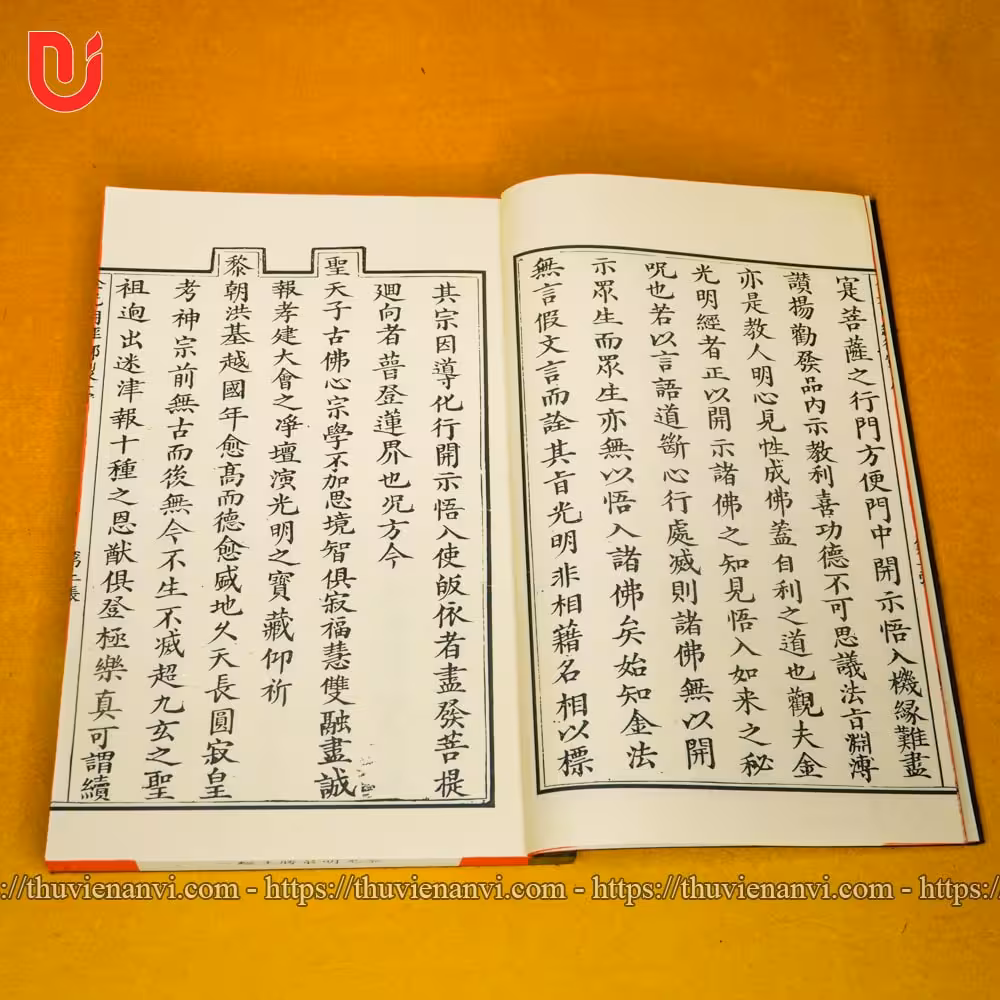 寔菩薩之行門方便門中開示悟入機緣難盡
讚揚勸發品內示教利喜功德不可思議法音淵溥
亦是教人明心見性成佛蓋自利之道也觀夫金
光明經者正以開示諸佛之知見悟入如来之秘
呪也若以言語道斷心行處滅則諸佛無以開
示眾生而眾生亦無以悟入諸佛矣始知金法
無言假文言而詮其音光明非相藉名相以標
其宗因導化行開示悟入使皈依者盡發菩提
廻向者普登蓮界也况方今
聖天子古佛心宗學不加思境智俱寂福慧雙融盡誠
報孝建大會之凈壇演光明之寶藏仰祈
黎朝洪基越國年愈髙而德愈盛地久天長圓寂皇
考神宗前無古而後無今不生不滅超九玄之聖
祖逈出迷津報十種之恩猷俱登極樂真可謂續
第二張
https://thuvienanvi.com - https://thuvienanvi.com - https://thuvienanvi.com - https://